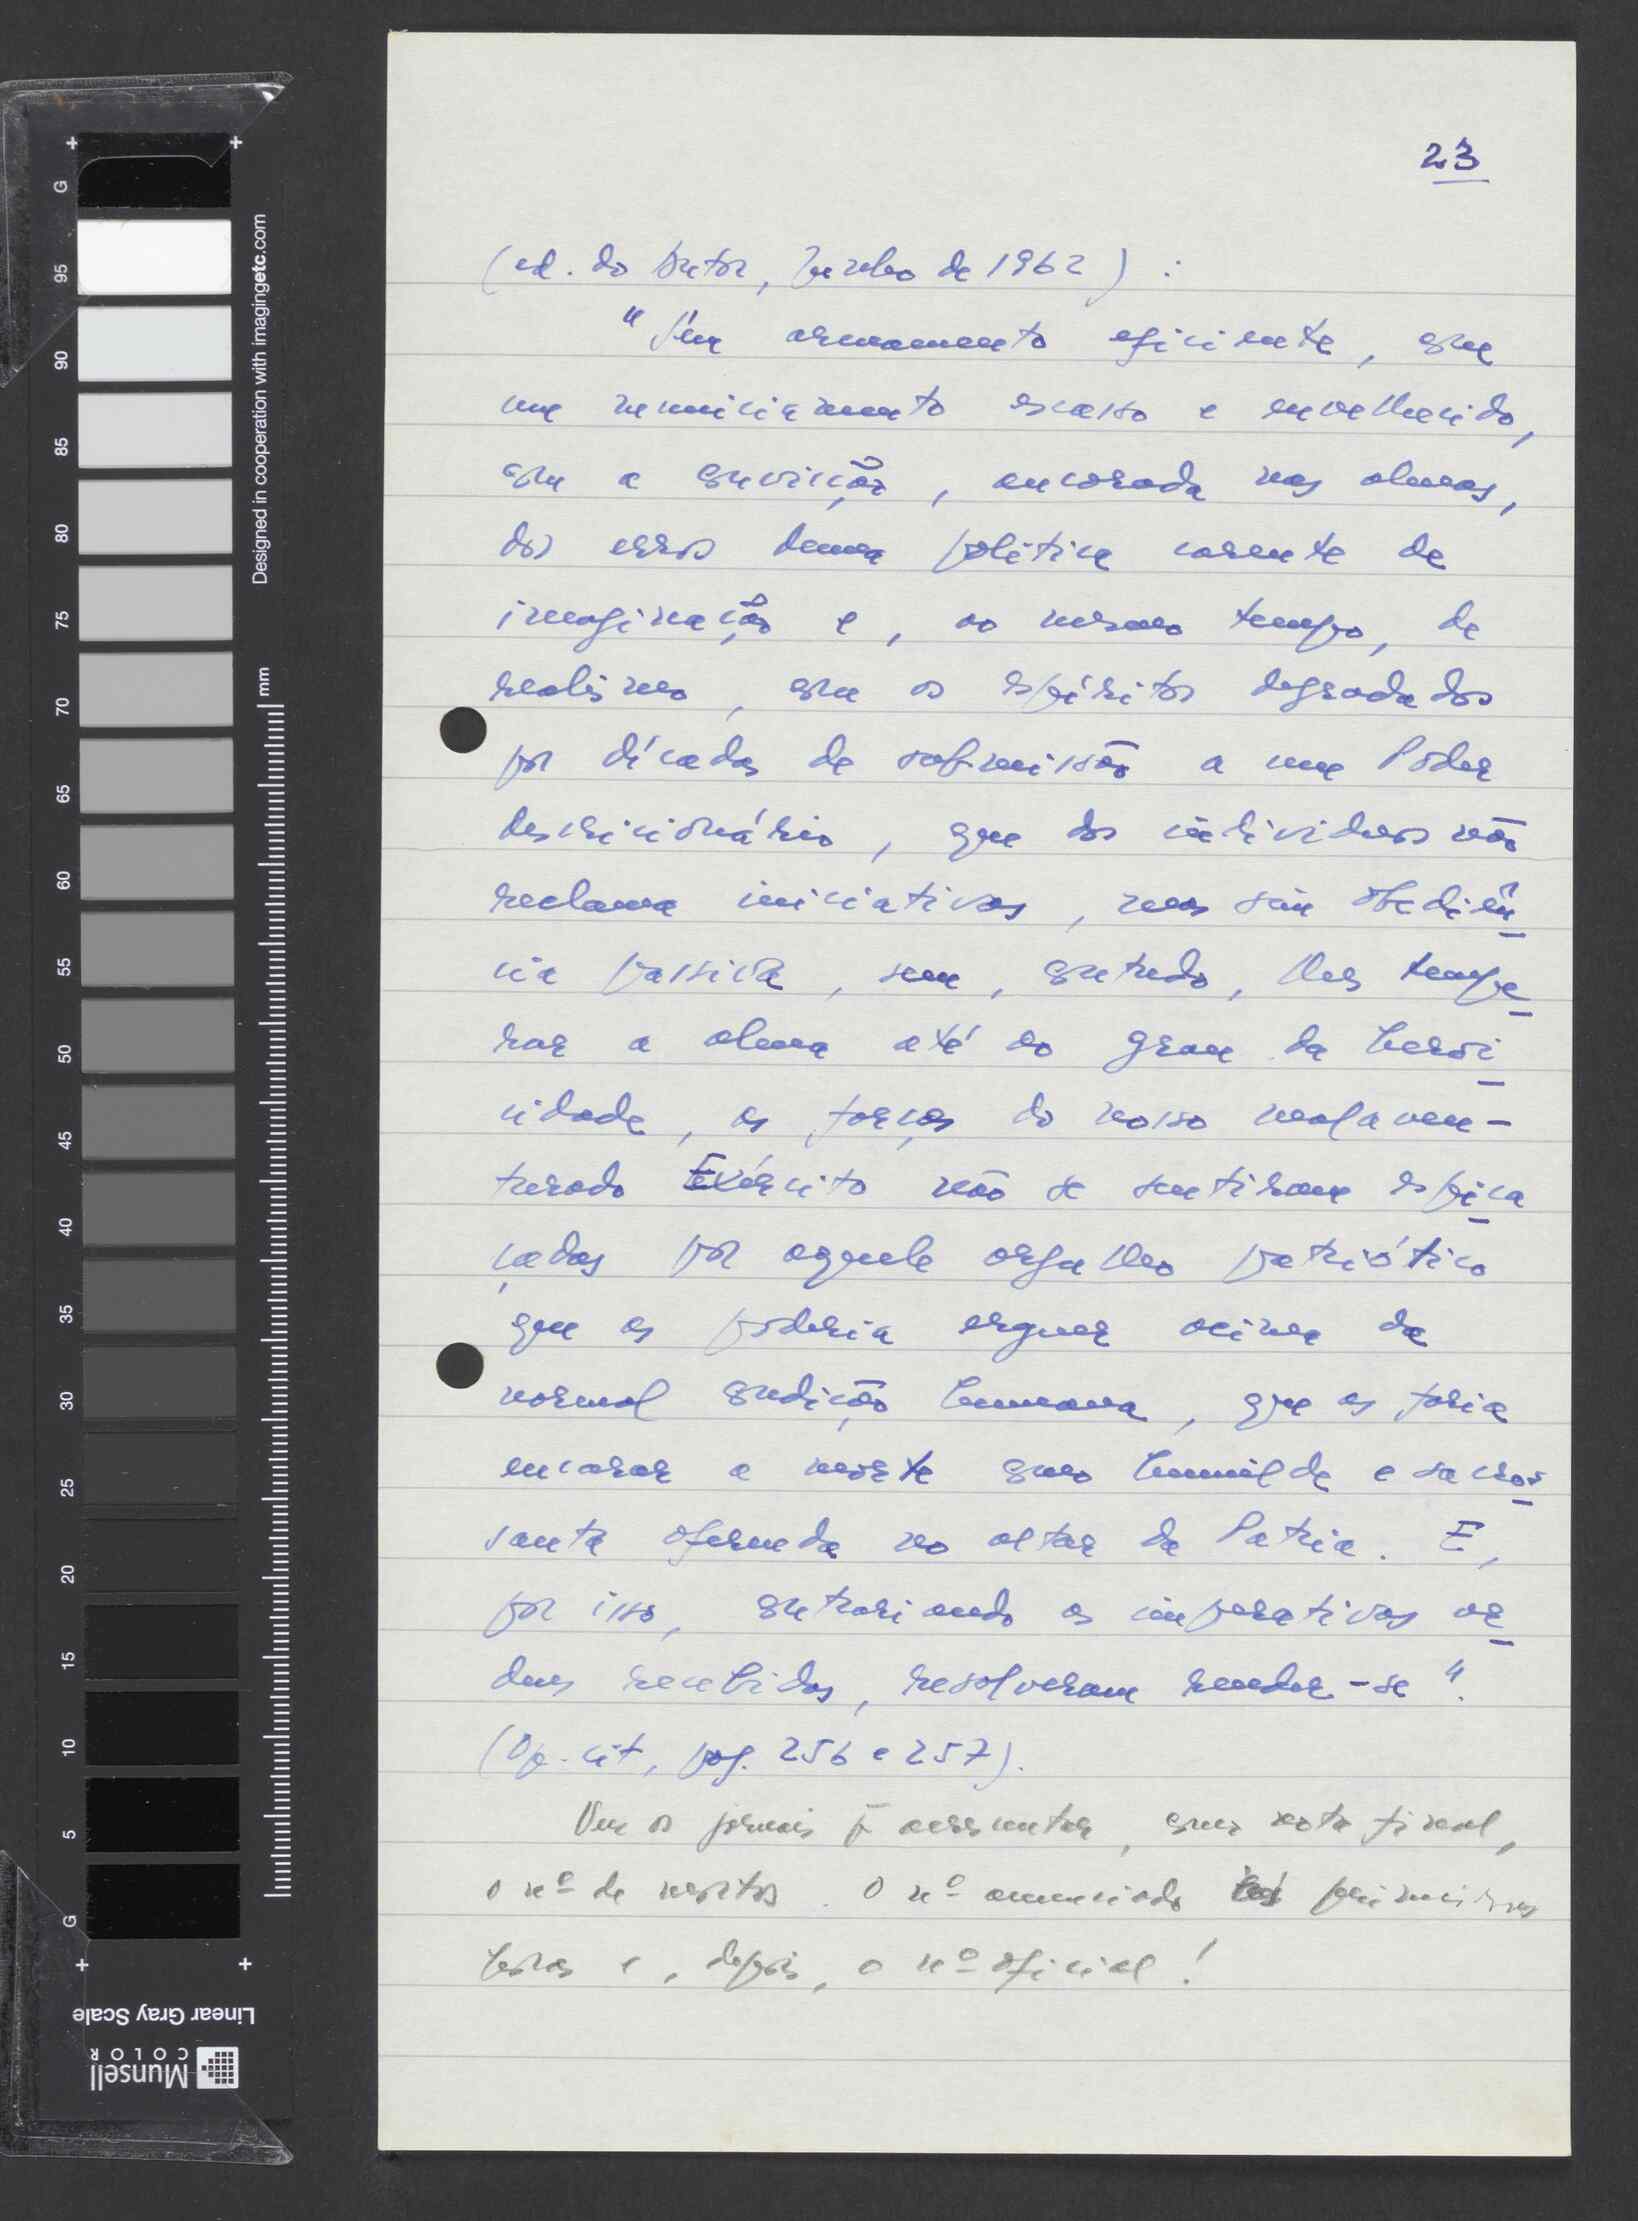 23
(ed. do Autor, Junho de 1962) :
"Sem armamento eficiente, com
um municiamento escasso e envelhecido,
com a convicção, ancorada nas almas,
dos erros duma política carente de
imaginação e, ao mesmo tempo, de
realismo, com os espíritos degradados
por décadas de submissão a um Poder
descricionário, que dos indivíduos não
reclama iniciativas, mas sim obediên
cia passiva, sem, contudo, lhes tempe
rar a alma até ao grau da heroi
cidade, as forças do nosso malaven-
turado Exército não se sentiram espica
çadas por aquele orgulho patriótico
que as poderia erguer acima da
normal condição humana, que as faria
encarar a morte como humilde e sacros
santa oferenda no altar da Patria. E,
por isso, contrariando os imperativos or
dens recebidas, resolveram render-se".
(Op. cit, pag. 256 e 257).
Ver os jornais p. acrescentar, com nota final,
o nº de mortos. O nº anunciado nas primeiras
horas e, depois, o nº oficial!
G
95
90
85
80
75
70
65
60
55
50
45
40
35
30
25
20
15
10
5
G
Designed in cooperation with imagingetc.com
mm
Linear Gray Scale
Munsell
COLOR